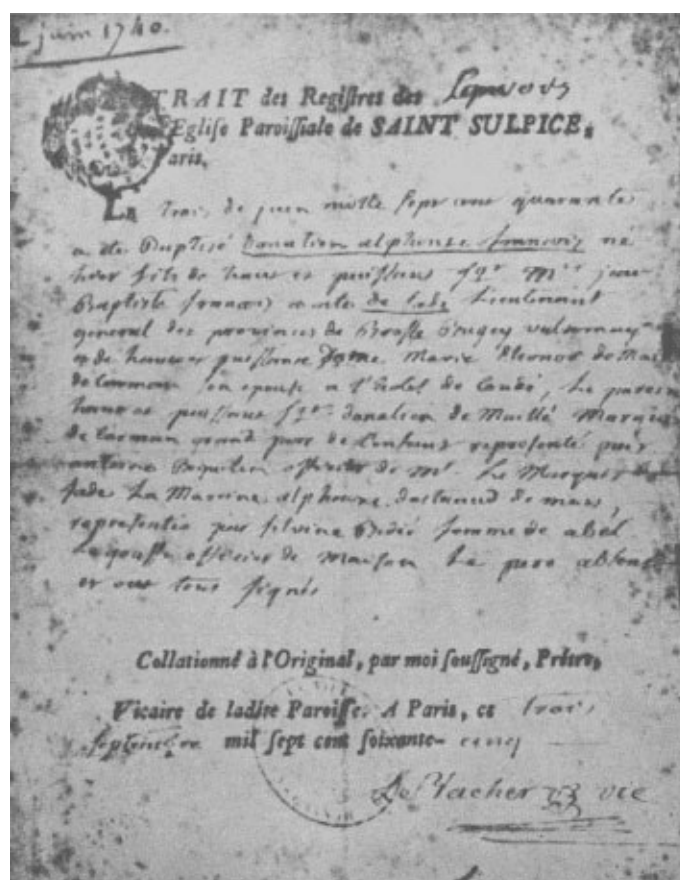 2 juin 1740.
EXTRAIT des Regiſtres des
de l'Egliſe Paroiſſiale de SAINT SULPICE,
Paris.
Le trois de juin mille ſept cent quarante
a été Baptisé donatien alphonse françois né
hier fils de haut et puiſſant Sgr. Mre jean
Baptiste françois comte de Sade Lieutenant
general des provinces de Breſſe Bugey valromey
et de haute et puiſſante Dame Marie Eleonor de Mai
de Carman son epouse a l'hotel de Condé, Le parein
haut et puiſſant Sgr. donatien de Maillé Marquis
de Carman grand pere de l'enfant representé par
antoine officier de Mr. Le Marquis de
Sade La Mareine alphonse dastaud de murs,
representée par Silvine Bedié femme de abel
officier de Maiſon Le pere absent
et ont tous ſignés
Collationné à l'Original, par moi ſouſſigné, Prêtre,
Vicaire de ladite Paroiſſe. A Paris, ce trois
Septembre mil ſept cent ſoixante-cinq
Le Vacher vic